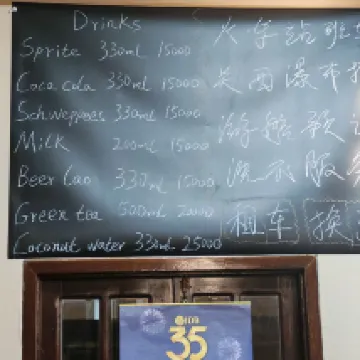 Drinks
Sprite 330ml 15000
Coca cola 330ml 15000
Schweppes 330ml 15000
Milk 200ml 15000
Beer Lao 330ml 15000
Green tea 500ml 20000
Coconut water 330ml 25000
火车站班车
瀑布
游船
租车 换
35